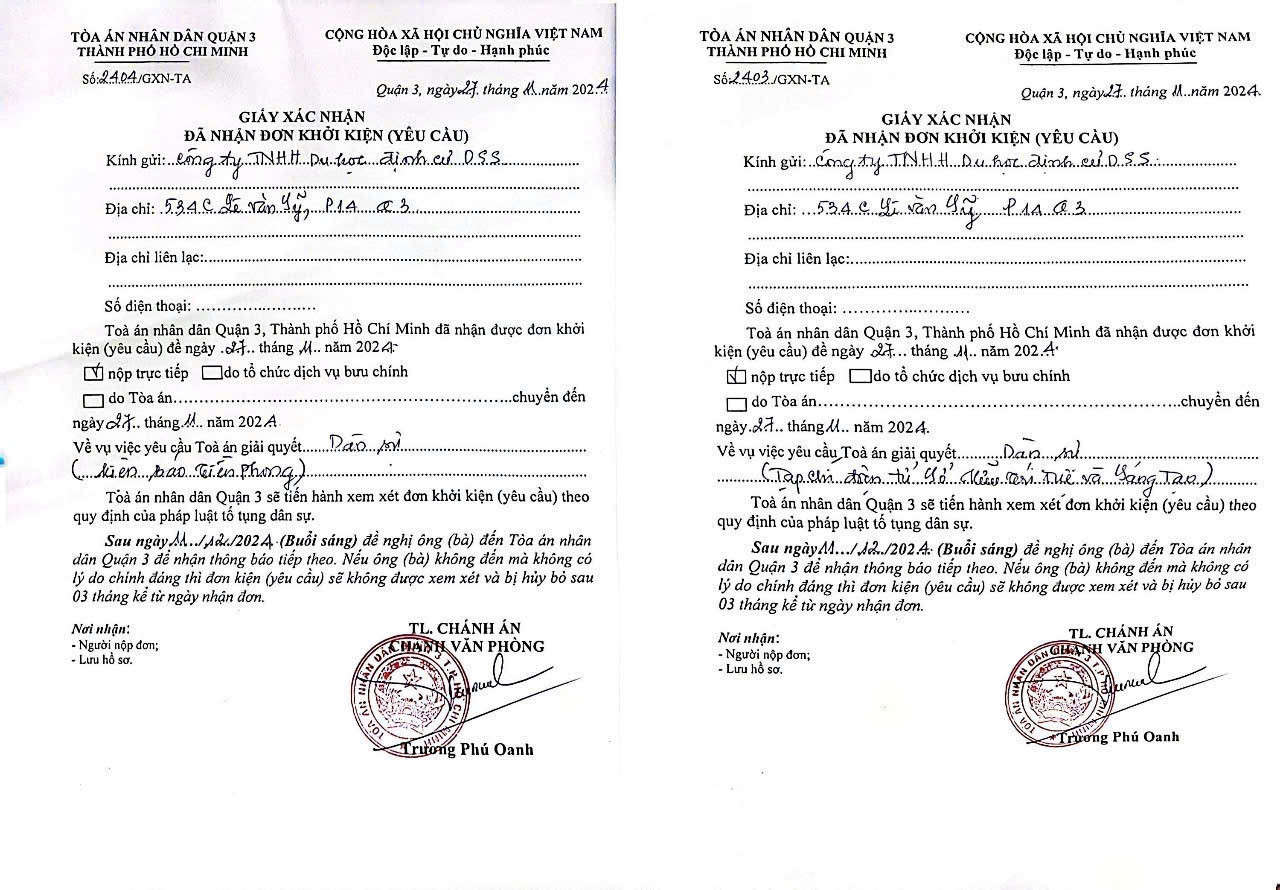 TÒA ÁN NHÂN DÂN QUẬN 3
THÀNH PHỐ HỒ CHÍ MINH
Số:2404/GXN-TA
CỘNG HÒA XÃ HỘI CHỦ NGHĨA VIỆT NAM
Độc lập - Tự do - Hạnh phúc
Quận 3, ngày 27. tháng 11..năm 2024
GIẤY XÁC NHẬN
ĐÃ NHẬN ĐƠN KHỞI KIỆN (YÊU CẦU)
Kính gửi: Công ty TNHH Du học định cư DSS
Địa chỉ: 534C Lê Văn Sỹ, P14 Q3
Địa chỉ liên lạc:
Số điện thoại:
Toà án nhân dân Quận 3, Thành phố Hồ Chí Minh đã nhận được đơn khởi
kiện (yêu cầu) đề ngày .27.. tháng 11.. năm 2024
nộp trực tiếp do tổ chức dịch vụ bưu chính
do Tòa án chuyển đến
ngày 27.. tháng 11.. năm 2024
Về vụ việc yêu cầu Toà án giải quyết Dân sự
(kiện báo Tiền Phong)
Toà án nhân dân Quận 3 sẽ tiến hành xem xét đơn khởi kiện (yêu cầu) theo
quy định của pháp luật tố tụng dân sự.
Sau ngày 11.../12./2024 (Buổi sáng) đề nghị ông (bà) đến Tòa án nhân
dân Quận 3 để nhận thông báo tiếp theo. Nếu ông (bà) không đến mà không có
lý do chính đáng thì đơn kiện (yêu cầu) sẽ không được xem xét và bị hủy bỏ sau
03 tháng kể từ ngày nhận đơn.
Nơi nhận:
- Người nộp đơn;
- Lưu hồ sơ.
TL. CHÁNH ÁN
CHÁNH VĂN PHÒNG
TÒA ÁN NHÂN DÂN QUẬN 3 T.P HỒ CHÍ MINH
Trương Phú Oanh
TÒA ÁN NHÂN DÂN QUẬN 3
THÀNH PHỐ HỒ CHÍ MINH
Số:2403/GXN-TA
CỘNG HÒA XÃ HỘI CHỦ NGHĨA VIỆT NAM
Độc lập - Tự do - Hạnh phúc
Quận 3, ngày 27.. tháng 11..năm 2024.
GIẤY XÁC NHẬN
ĐÃ NHẬN ĐƠN KHỞI KIỆN (YÊU CẦU)
Kính gửi: Công ty TNHH Du học định cư DSS
Địa chỉ: 534C Lê Văn Sỹ P14 Q3
Địa chỉ liên lạc:
Số điện thoại:
Toà án nhân dân Quận 3, Thành phố Hồ Chí Minh đã nhận được đơn khởi
kiện (yêu cầu) đề ngày 27.. tháng 11.. năm 2024
nộp trực tiếp do tổ chức dịch vụ bưu chính
do Tòa án chuyển đến
ngày 27.. tháng 11.. năm 2024.
Về vụ việc yêu cầu Toà án giải quyết Dân sự
(Tạp chí điện tử Sở hữu Trí Tuệ và Sáng Tạo)
Toà án nhân dân Quận 3 sẽ tiến hành xem xét đơn khởi kiện (yêu cầu) theo
quy định của pháp luật tố tụng dân sự.
Sau ngày 11.../12./2024 (Buổi sáng) đề nghị ông (bà) đến Tòa án nhân
dân Quận 3 để nhận thông báo tiếp theo. Nếu ông (bà) không đến mà không có
lý do chính đáng thì đơn kiện (yêu cầu) sẽ không được xem xét và bị hủy bỏ sau
03 tháng kể từ ngày nhận đơn.
Nơi nhận:
- Người nộp đơn;
- Lưu hồ sơ.
TL. CHÁNH ÁN
CHÁNH VĂN PHÒNG
TÒA ÁN NHÂN DÂN QUẬN 3 T.P HỒ CHÍ MINH
Trương Phú Oanh